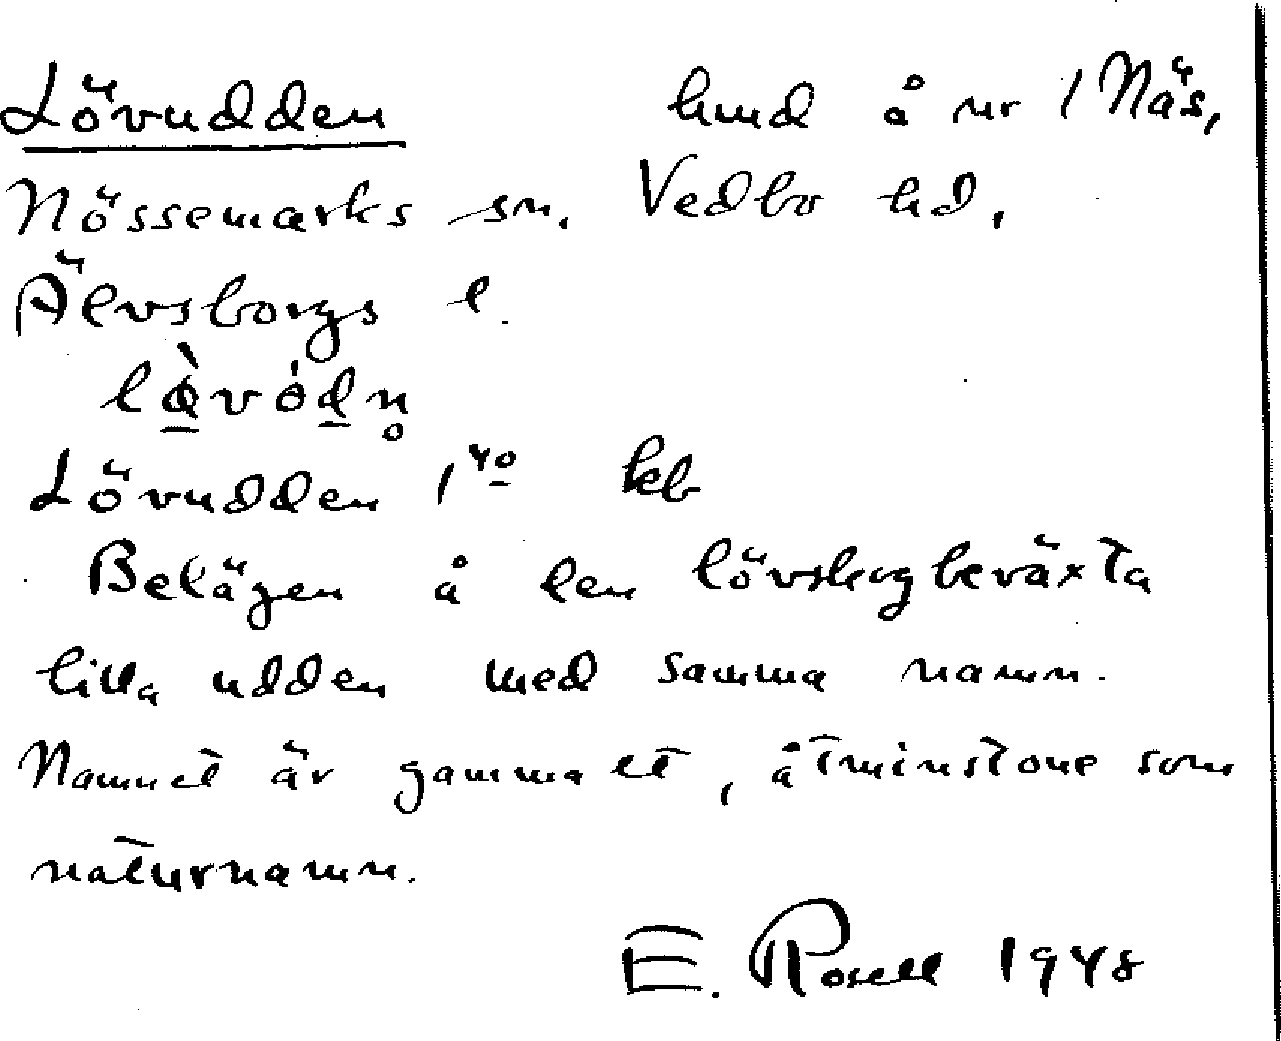 Lövudden hmd å nr 1 Näs,
Nössemarks sn. Vedbo hd,
Älvsborgs l.
Lövudden 1 40 keb
Belägen å den lövskogbeväxta
lilla udden med samma namn.
Namnet är gammalt, åtminstone som
naturnamn.
E. Rosell 1948